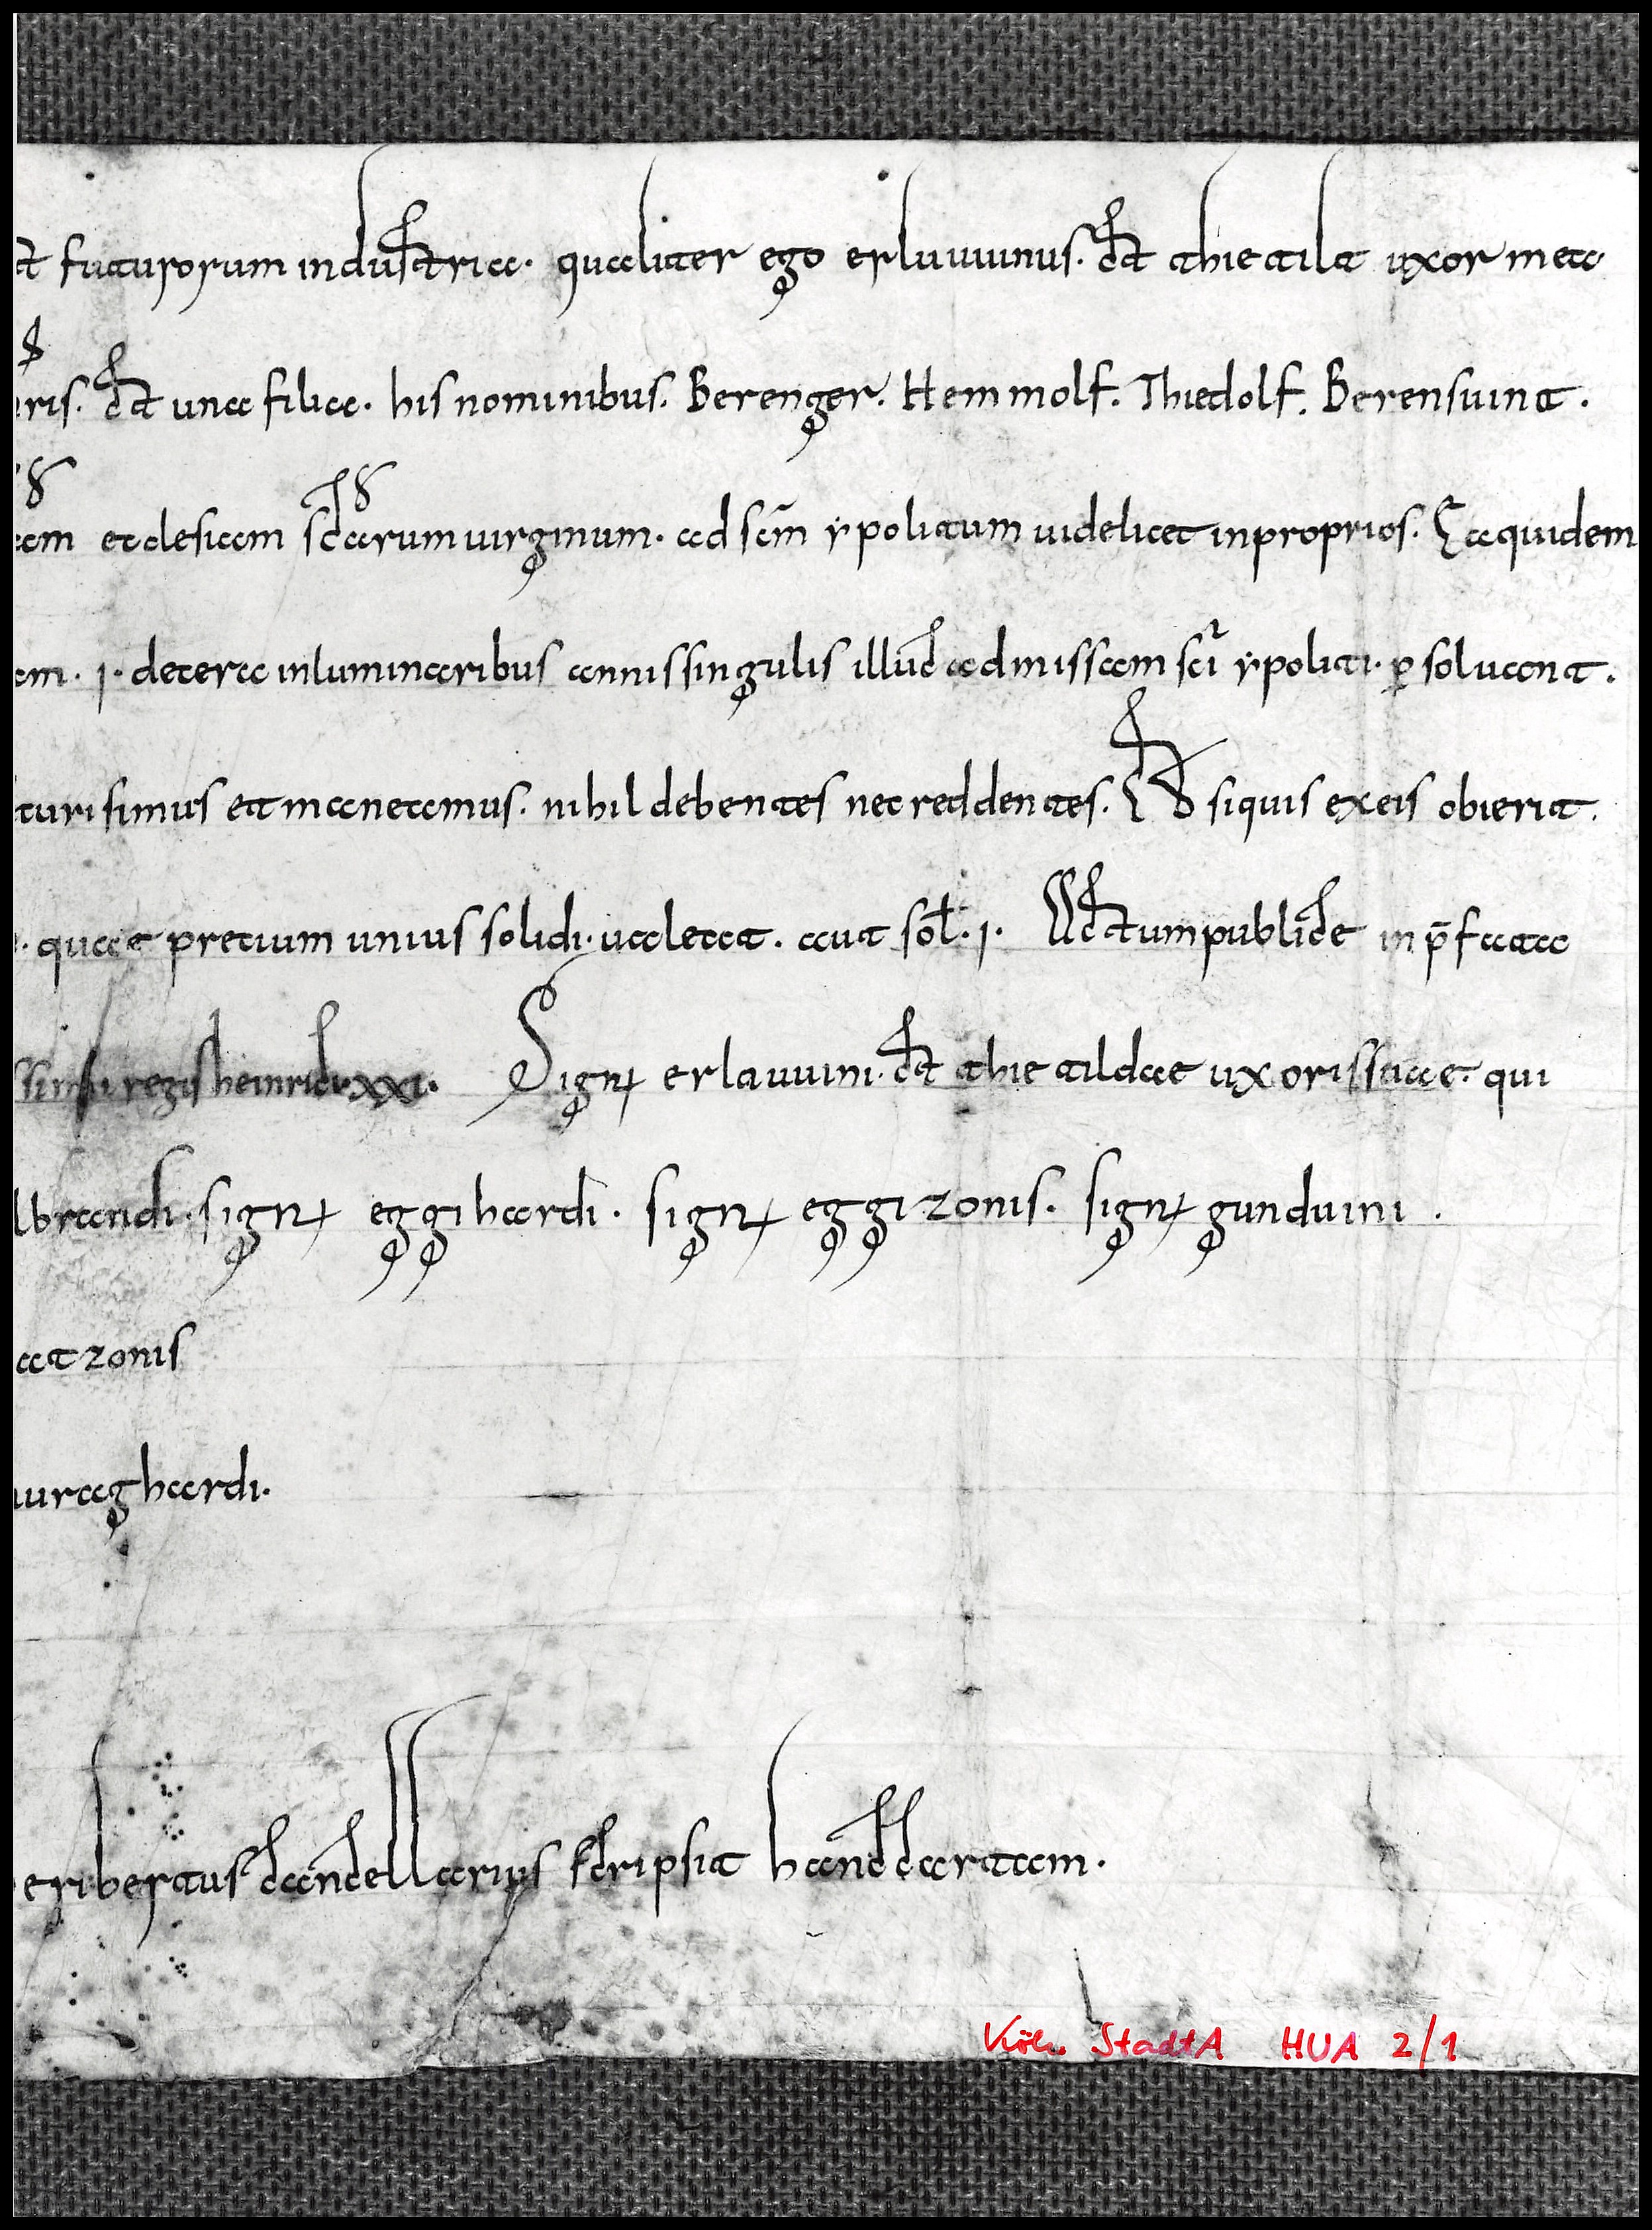 et futurorum industria. qualiter ego erluuuinus. et thietilt uxor mea
ris. et una filia. his nominibus. Berenger. Hemmolf. Thiedolf. Berensuint.
am ecclesiam scarum uirginum. ad scm ypolitum uidelicet inproprios. Ea quidem
em. i. de cera inluminaribus annis singulis illuc ad missam sci ypoliti. p soluant.
turi simus et maneamus. nihil debentes nec reddentes. Et si quis ex eis obierit.
quae precium unius solidi. ualeat. aut sol. i. Actum publice in p̄fata
ssimi regis heinrici. xxi. Sign erlauuini. et thietildae uxoris suae. qui
lbrandi. sign eggihardi. sign eggizonis. sign gunduini.
atzonis
uuraghardi.
eribertus cancellarius scripsit hanc cartam.
Köln StadtA HUA 2/1